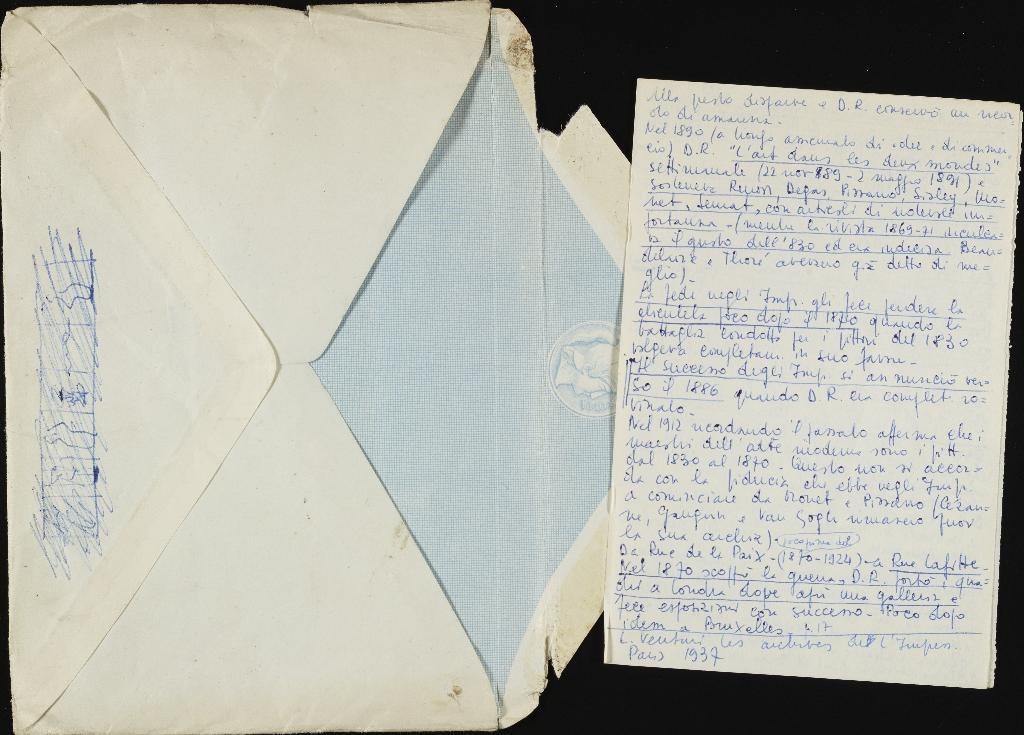 Ma presto disparve e D.R. conservò un ricor
do di amarezza.
Nel 1890 (a lungo di idee e di commer
cio) D.R. "L'art dans les deux mondes"
settimanale (22 nov 889 - 2 maggio 1891) e
sosteneva Renoir, Degas, Pissarro, Sisley, Mo-
net, Seurat, con articoli di notevole im-
portanza - (mentre la rivista 1869-71
il gusto dell'830 ed era indecisa Beau-
delaire e Thoré avevano già detto di me-
glio) -
La fede negli Imp. gli fece perdere la
clientela poco dopo il 1870 quando la
battaglia condotta per i pittori del 1830
volgeva completam. in suo favore -
Il successo degli Imp. si annunciò ver-
so il 1886 quando D.R. era complet. ro-
vinato -
Nel 1912 ricordando il passato afferma che i
maestri dell'arte moderna sono i pitt.
dal 1830 al 1870 - Questo non si accor-
da con la fiducia che ebbe negli Imp.
a cominciare da Monet e Pissarro (Cézan-
ne, Gauguin e Van Gogh rimasero fuor
la sua cerchia) -
Da Rue de la Paix - (1870-1924) - a Rue Lafitte
Nel 1870 scoppiò la guerra, D.R. portò i qua-
dri a Londra dove aprì una galleria e
fece esposizioni con successo - Poco dopo
idem a Bruxelles - 17
L. Venturi les archives de L'Impress.
Paris 1937